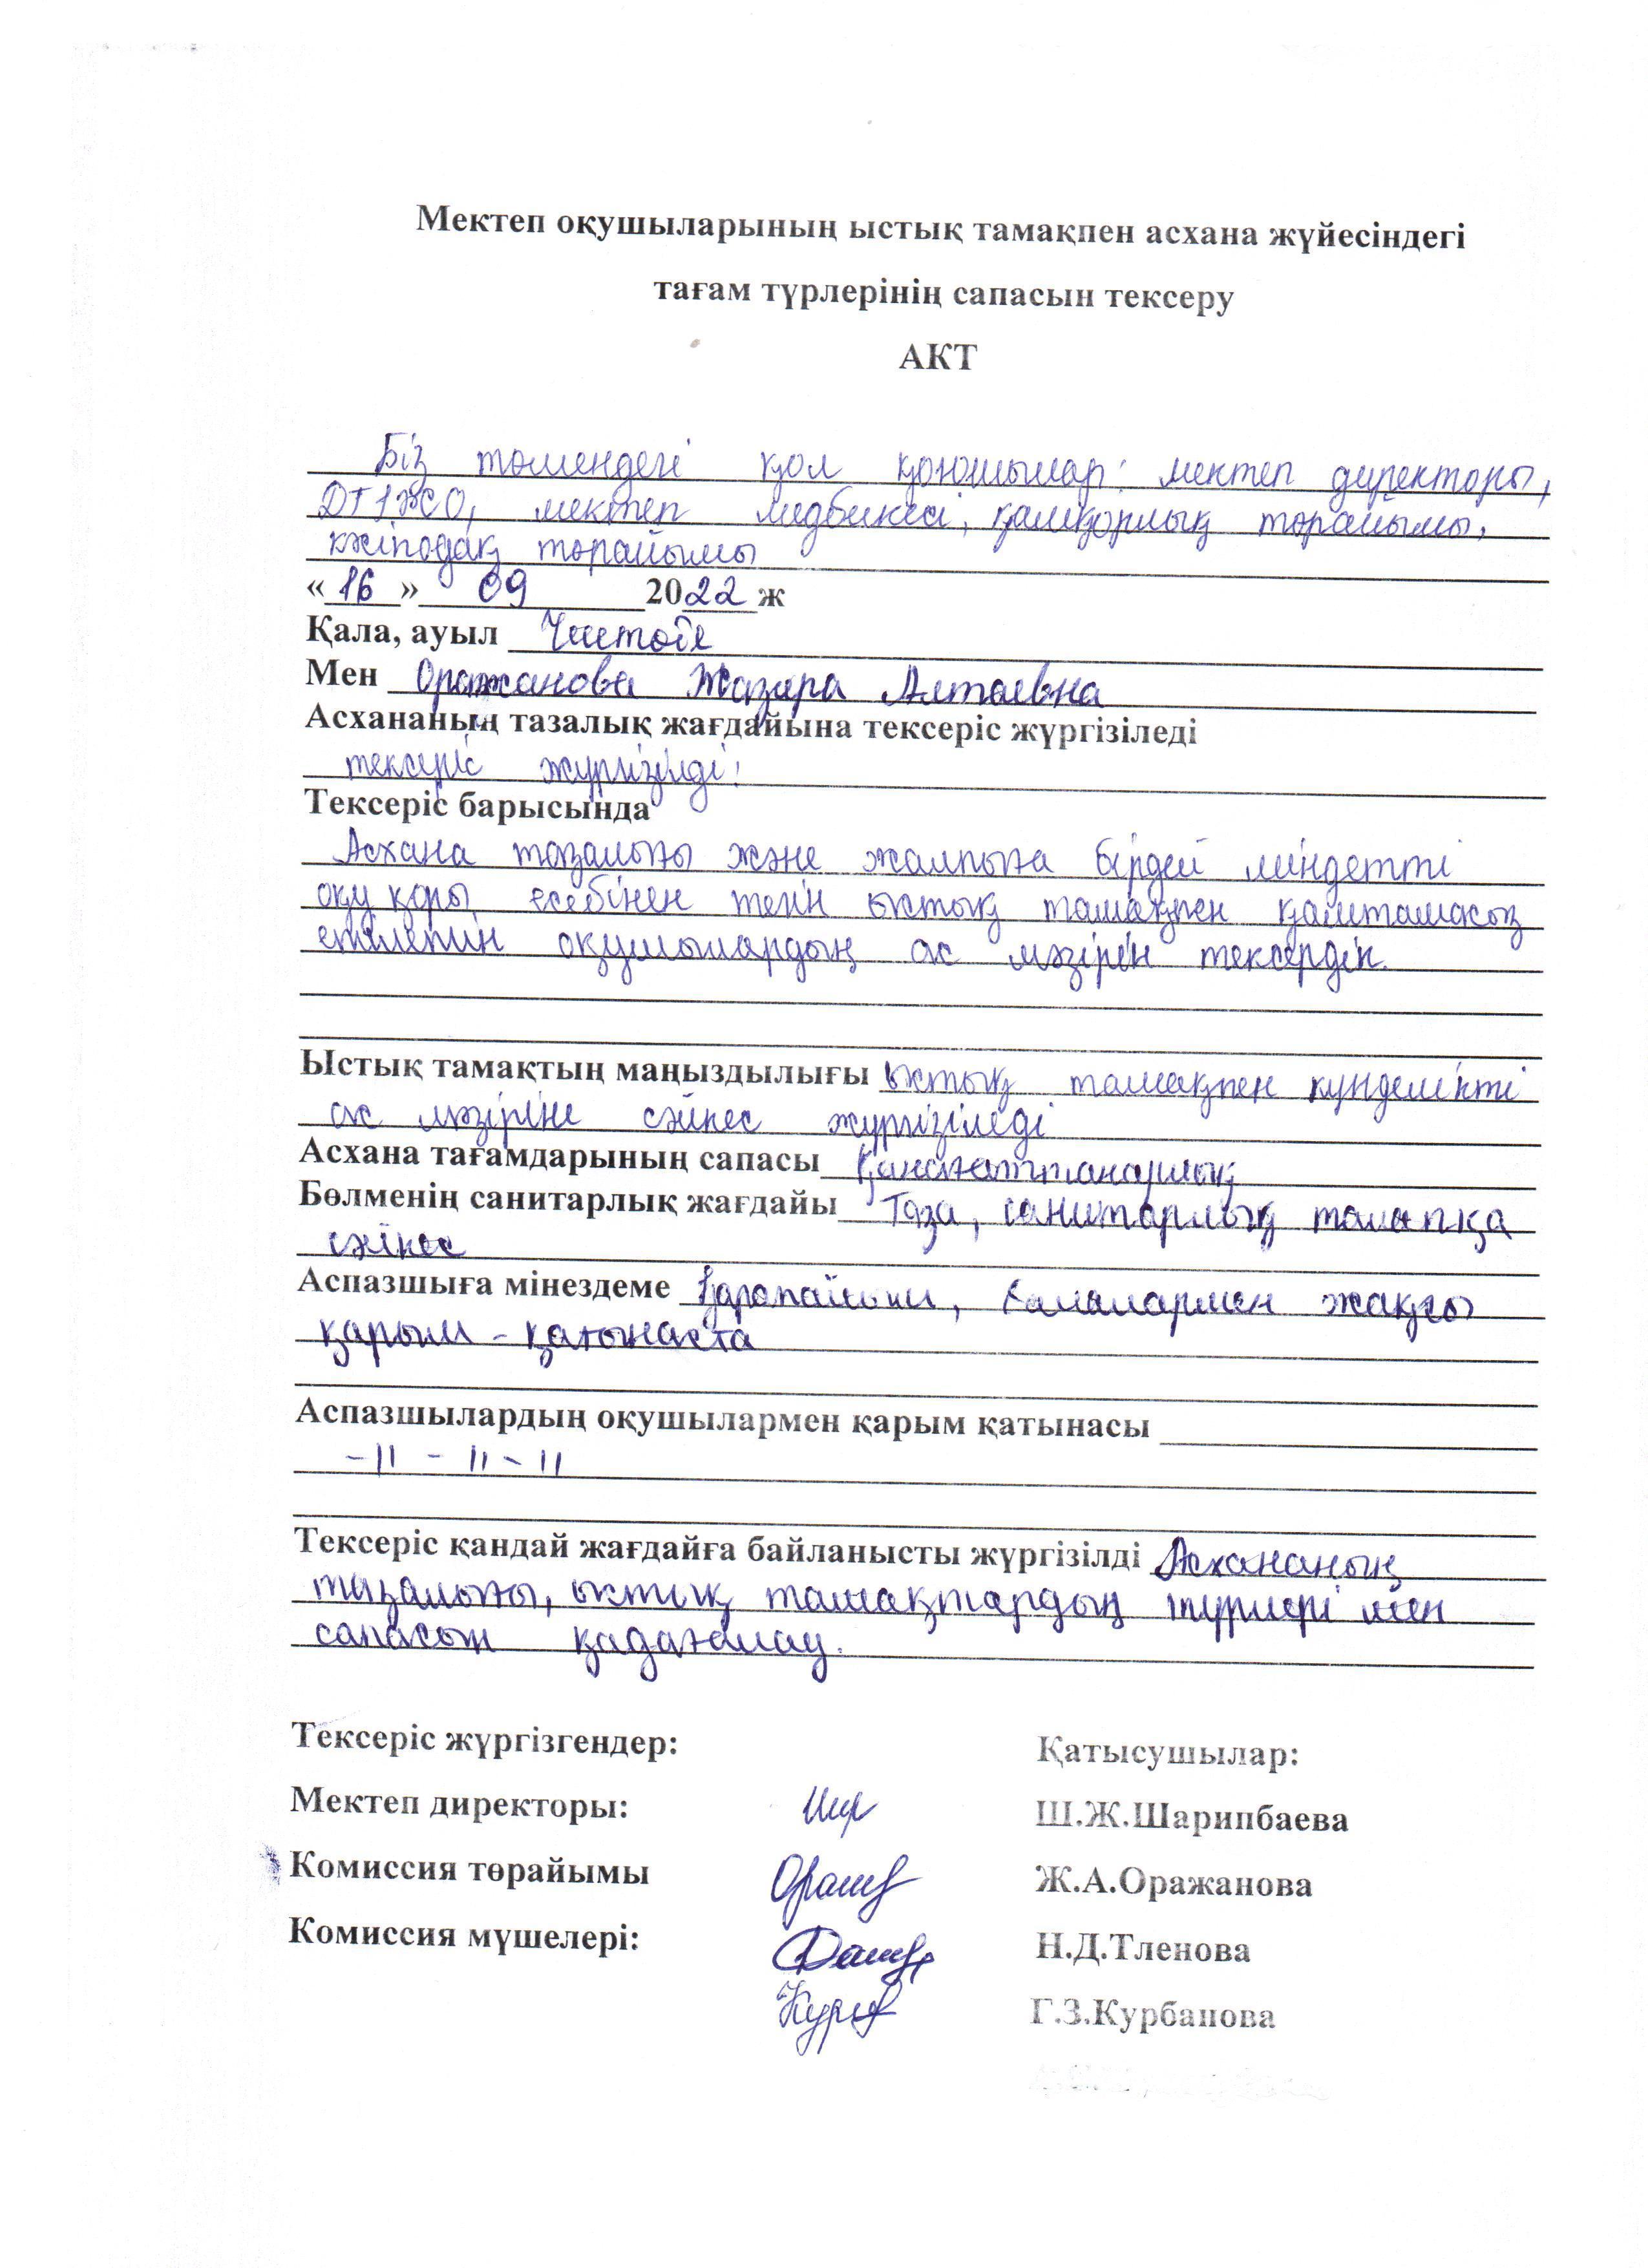 Мектеп оқушыларының ыстық тамақпен асхана жүйесіндегі
тағам түрлерінің сапасын тексеру
АКТ
Біз төмендегі қол қоюшылар: мектеп директоры,
ДТІЖО, мектеп медбикесі, қамқорлық төрайымы,
кәсіподақ төрайымы
«16» 09 2022 ж
Қала, ауыл
Мен Оражанова Жазира Алтаевна
Асхананың тазалық жағдайына тексеріс жүргізіледі
тексеріс жүргізілді:
Тексеріс барысында
Асхана тазалығы және жалпыға бірдей міндетті
оқу қоры есебінен тегін ыстық тамақпен қамтамасыз
етілетін оқушылардың ас мәзірін тексердік.
Ыстық тамақтың маңыздылығы ыстық тамақпен күнделікті
ас мәзіріне сәйкес жүргізіледі
Асхана тағамдарының сапасы қанағаттанарлық
Бөлменің санитарлық жағдайы Таза, санитарлық талапқа
сәйкес
Аспазшыға мінездеме Қарапайым, балалармен жақсы
қарым - қатынаста
Аспазшылардың оқушылармен қарым қатынасы
-11 - 11 - 11
Тексеріс қандай жағдайға байланысты жүргізілді Асхананың
тазалығы, ыстық тамақтардың түрлері мен
сапасын қадағалау.
Тексеріс жүргізгендер: Қатысушылар:
Мектеп директоры: Ш.Ж.Шарипбаева
Комиссия төрайымы Ж.А.Оражанова
Комиссия мүшелері: Н.Д.Тленова
Г.З.Курбанова